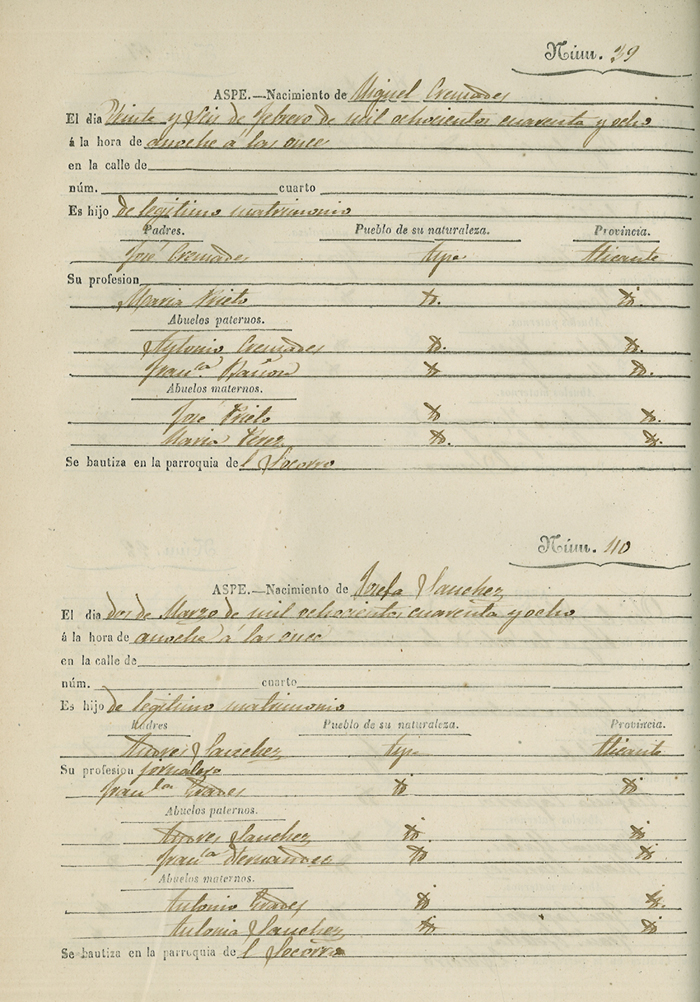 Núm. 39
ASPE.—Nacimiento de Miguel Cremades
El dia Veinte y Seis de Febrero de mil ochocientos cuarenta y ocho
á la hora de anoche á las once
en la calle de
núm. cuarto
Es hijo de legitimo matrimonio
Padres. Pueblo de su naturaleza. Provincia.
José Cremades Aspe Alicante
Su profesion
Maria Prieto id. id.
Abuelos paternos.
Antonio Cremades id. id.
Fran.ca Bañon id id.
Abuelos maternos.
José Prieto id id.
Maria Perez id. id.
Se bautiza en la parroquia del Socorro
Núm. 40
ASPE.—Nacimiento de Josefa Sanchez
El dia dos de Marzo de mil ochocientos cuarenta y ocho
á la hora de anoche á las once
en la calle de
núm. cuarto
Es hijo de legitimo matrimonio
Padres Pueblo de su naturaleza. Provincia.
Andres Sanchez Aspe Alicante
Su profesion jornalero
id id
Abuelos paternos.
Andres Sanchez id. id
Fran.ca Hernandez id id
Abuelos maternos.
Antonio id id.
Antonia Sanchez id id
Se bautiza en la parroquia del Socorro